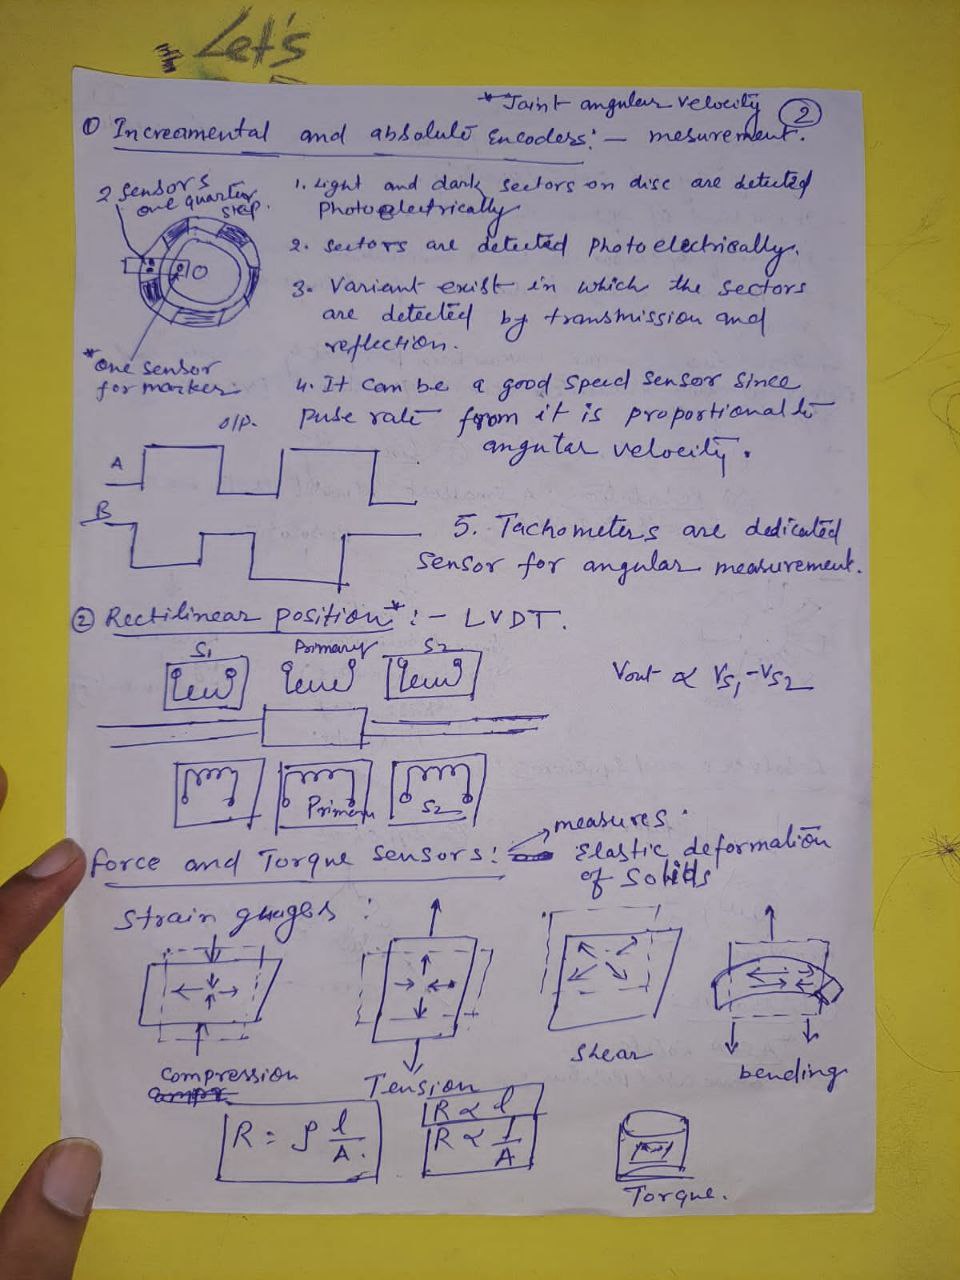 Let's
* Joint angular velocity
2
① Increamental and absolute Encoders :- mesurement.
2 sensors
one quarter
step.
1. Light and dark sectors on disc are detected
Photoelectrically
2. sectors are detected Photoelectrically.
3. Variant exist in which the sectors
are detected by transmission and
reflection.
*One sensor
for marker.
4. It can be a good speed sensor since
puse rate from it is proportional to
angular velocity.
O/P.
A
B
5. Tachometers are dedicated
sensor for angular measurement.
② Rectilinear position* :- LVDT.
S1 Primary S2
Vout ∝ VS1 - VS2
Primary S2
force and Torque sensors:
measures.
Elastic deformation
of Solids
Strain guages :
Compression
Tension
Shear
bending
R = ρ l/A.
R ∝ l
R ∝ 1/A
Torque.